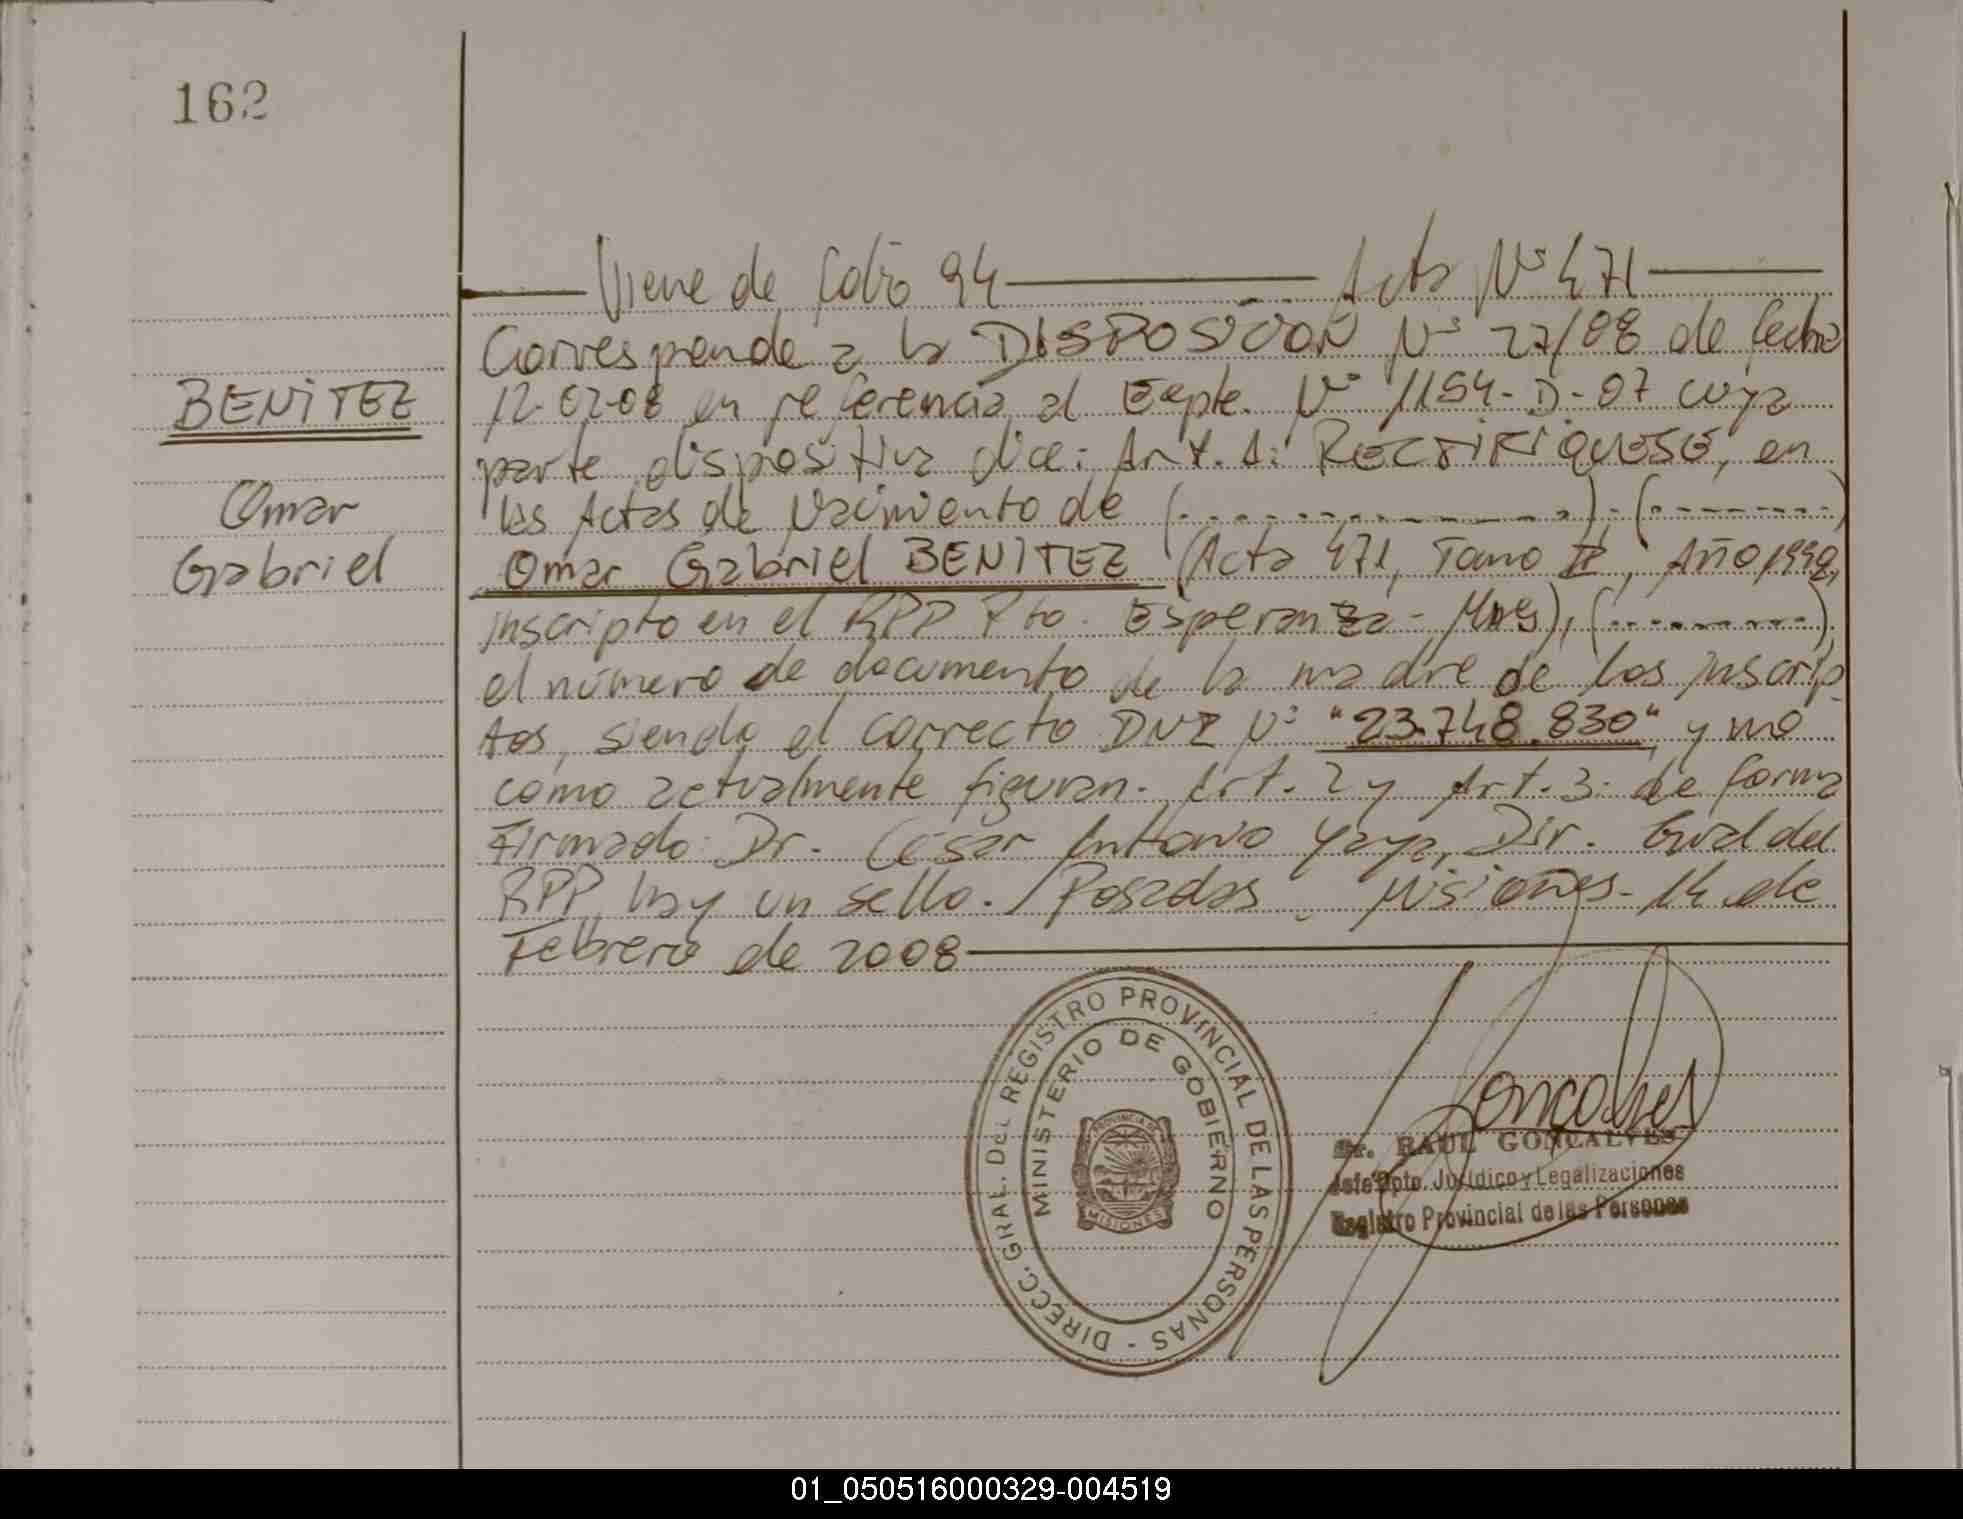 162
Viene de folio 94 Acta Nº 471
Corresponde a la DISPOSICION Nº 27/08 de fecha
BENITEZ
12-02-08 en referencia al Expte. Nº 1154-D-07 cuya
parte dispositiva dice: Art. 1: RECTIFIQUESE, en
Omar
las Actas de Nacimiento de (...............); (--------)
Gabriel
Omar Gabriel BENITEZ (Acta 471, Tomo II, Año 1992,
inscripto en el RPP Pto. Esperanza - Mnes), (..........),
el número de documento de la madre de los inscrip
tos, siendo el correcto DNI Nº "23.748.830", y no
como actualmente figuran. Art. 2 y Art. 3: de forma
Firmado: Dr. César Antonio Yaya, Dir. Gral del
RPP, hay un sello. Posadas, Misiones - 14 de
Febrero de 2008
DIRECC. GRAL. DEL REGISTRO PROVINCIAL DE LAS PERSONAS -
MINISTERIO DE GOBIERNO
PROVINCIA DE
MISIONES
Goncalves
Dr. RAUL GONÇALVES
Jefe Dpto. Jurídico y Legalizaciones
Registro Provincial de las Personas
01_050516000329-004519